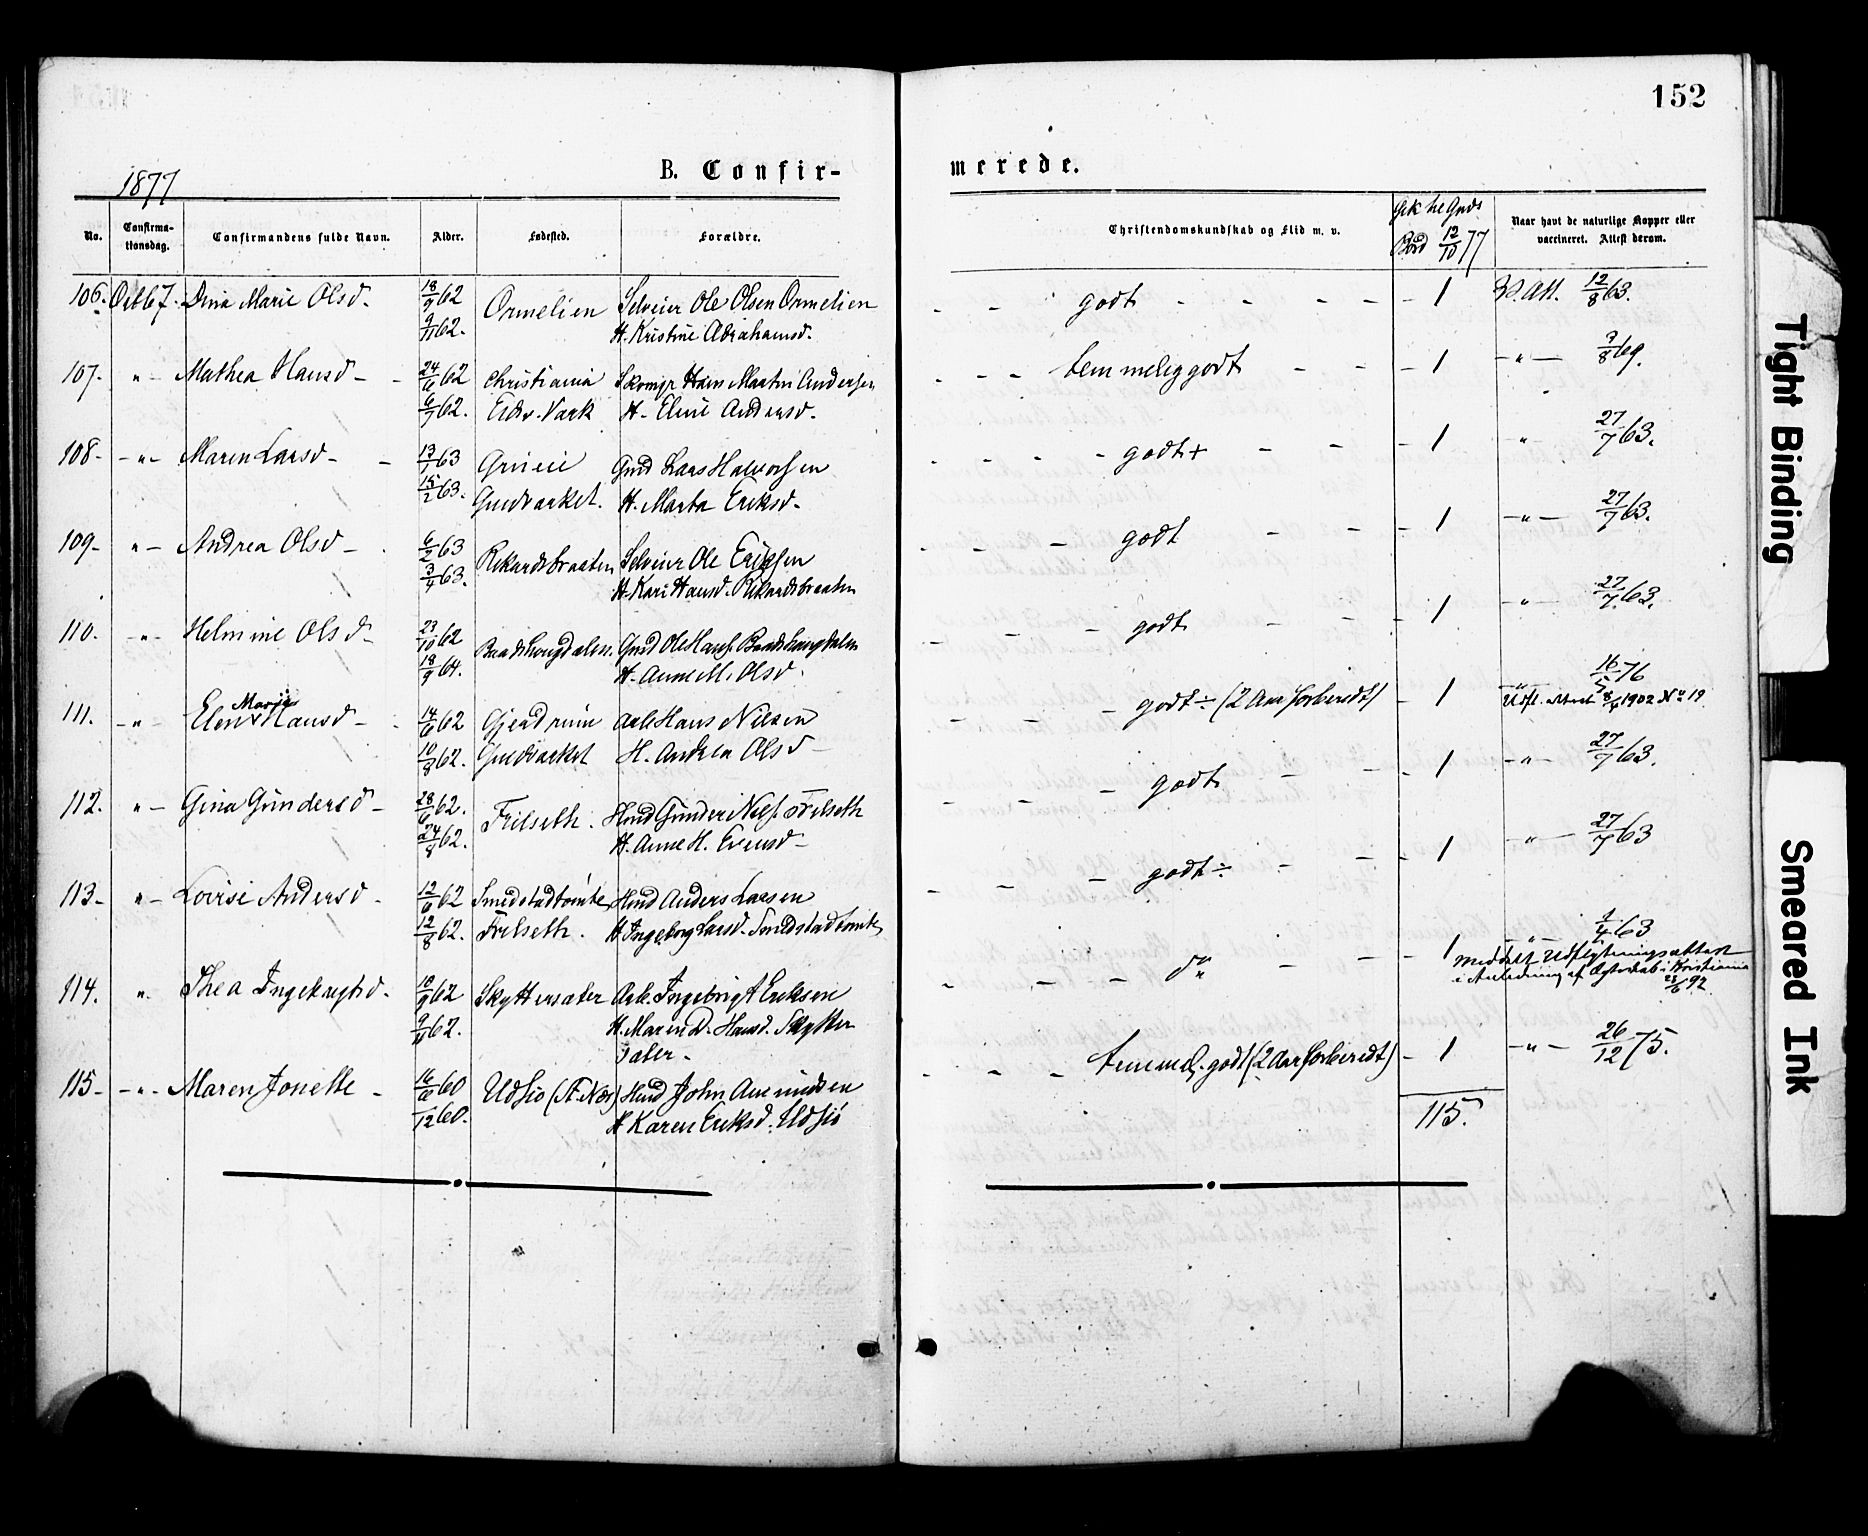 152
1877
B. Confir-
merede.
No.
Confirma-
tionsdag.
Confirmandens fulde Navn.
Alder.
Fødested.
Forældre.
Christendomskundskab og Flid m. v.
Gik til Guds
Bord 12/10 77
Naar havt de naturlige Kopper eller
vaccineret. Attest derom.
106. Octb 7. Dina Marie Olsd. 18/9 62 Ormelien Selveier Ole Olsen Ormelien godt 1 V. Att. 12/8 63.
9/11 62. H. Kristine Abrahamsd.
107. " Mathea Hansd 24/6 62 Christiania Hans Martin Andersen temmelig godt 1 " 3/8 69.
6/7 62. Eidsv. Værk H. Eline Andersd.
108. " Maren Larsd 13/1 63 Lars Halvorsen godt+ 1 " 27/7 63.
15/2 63. Guldværket. H. Marta Eriksd.
109. " Andrea Olsd 6/2 63 Rikardsbraaten Selveier Ole Eriksen godt 1 " 27/7 63.
3/4 63. H. Kari Hansd. Rikardsbraaten
110. " Helmine Olsd 23/10 62 Ole Hans. godt 1 " 27/7 63.
18/9 64. H. Anne M. Olsd.
111. " Elen Marie Hansd 14/6 62 Gjerdrum Arb Hans Nilsen godt ÷ (2 Aar forberedt) 1 " 16/5 76
Udfl. attest 8/4 1902 No 19
10/8 62. Guldværket H. Andrea Olsd
112. " Gina Gundersd 28/6 62. Frilseth. Huusmd Gunder Nils. Frilseth godt 1 " 27/7 63.
24/8 62. H. Anne H. Evensd
113. " Lovise Andersd 12/6 62 Smedstadtomte Huusmd Anders Larsen godt ÷ 1 " 27/7 63
12/8 62. Frilseth. H Ingeborg Larsd. Smedstadtomte
114. " Thea Ingebrigtsd. 18/9 62 Skyttersæter Arb. Ingebrigt Eriksen do 1 " 1/4 63
Meddelt Udflytningsattest
i Anledning af Ægteskab i Kristiania
28/6 92.
9/11 62. H. Maren D. Hansd. Skytter
sæter
115 " Maren Jonette 16/6 60 Udsiø (N. Næs) John Amundsen temmel. godt (2 Aar forberedt) 1 " 26/12 75.
/12 60. H Karen Eriksd. Udsiø
115.
Tight Binding
Smeared Ink